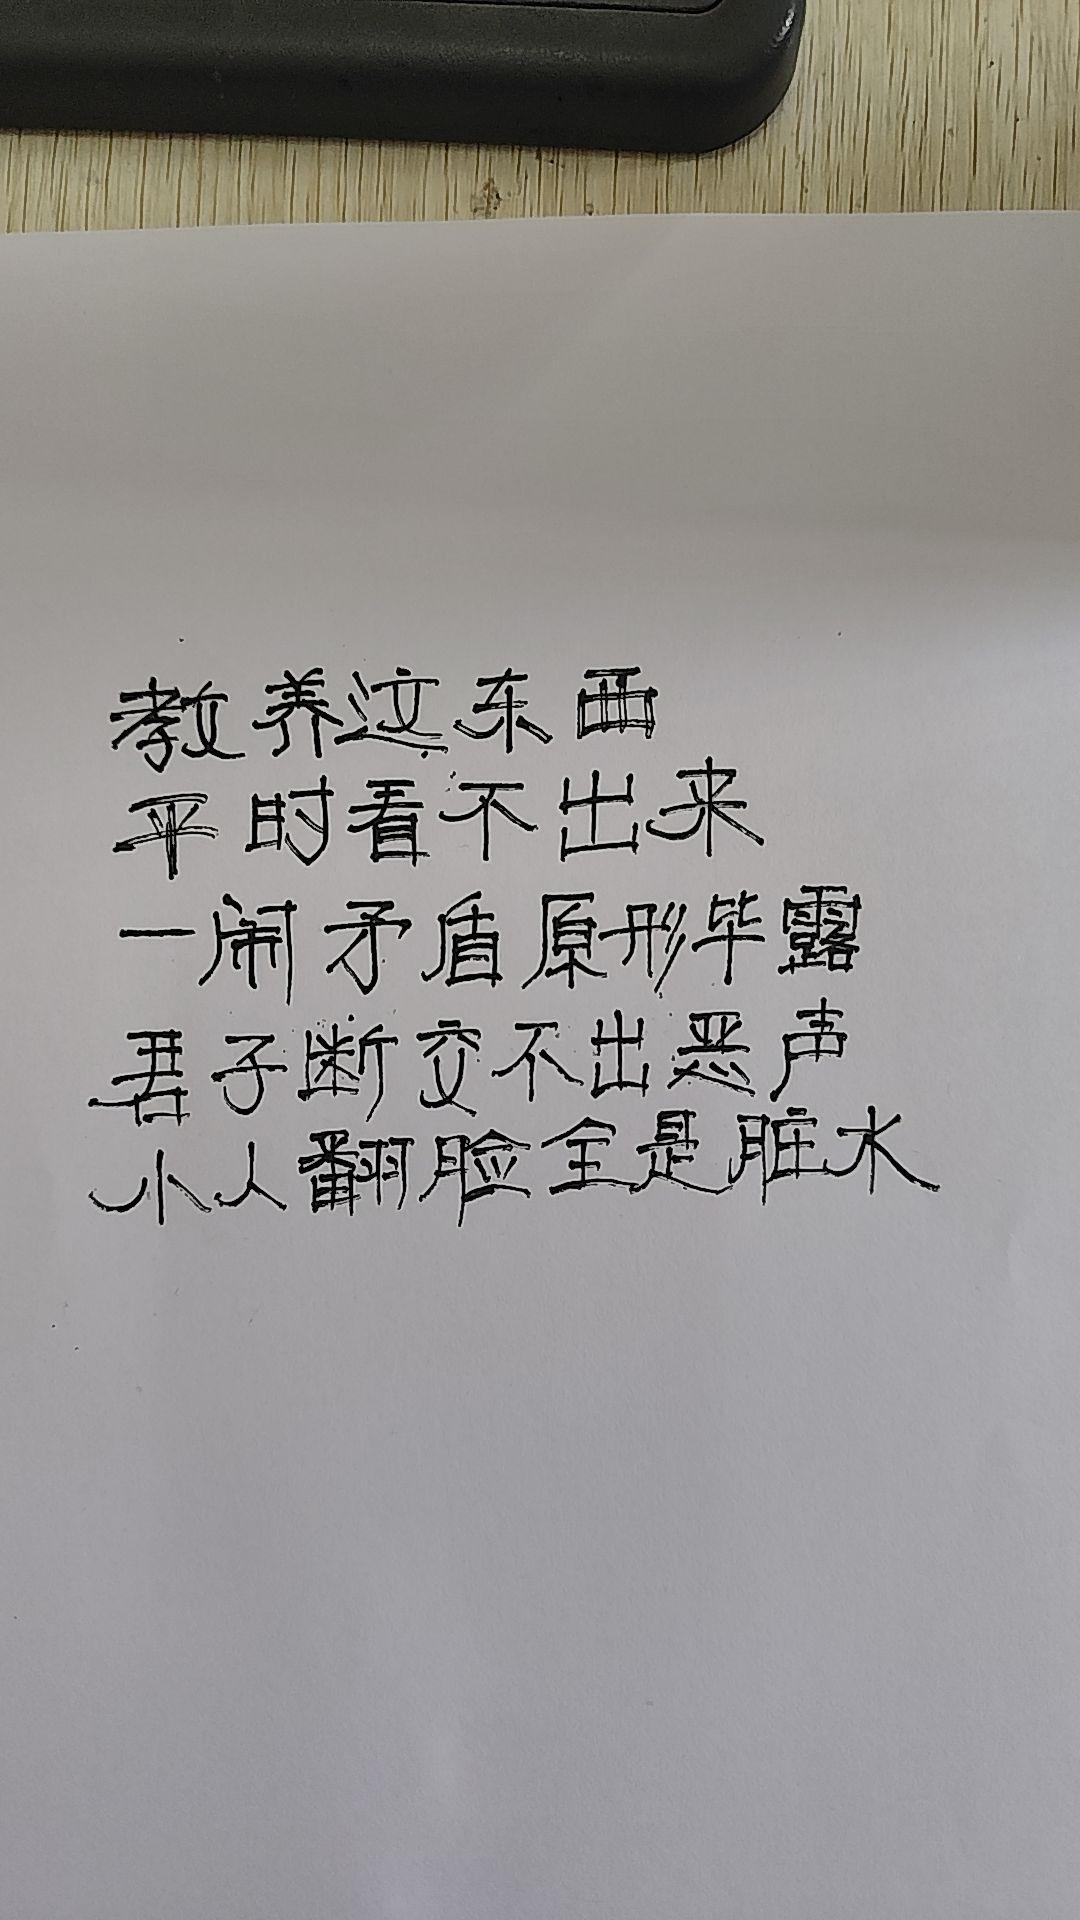 教养这东西
平时看不出来
一闹矛盾原形毕露
君子断交不出恶声
小人翻脸全是脏水